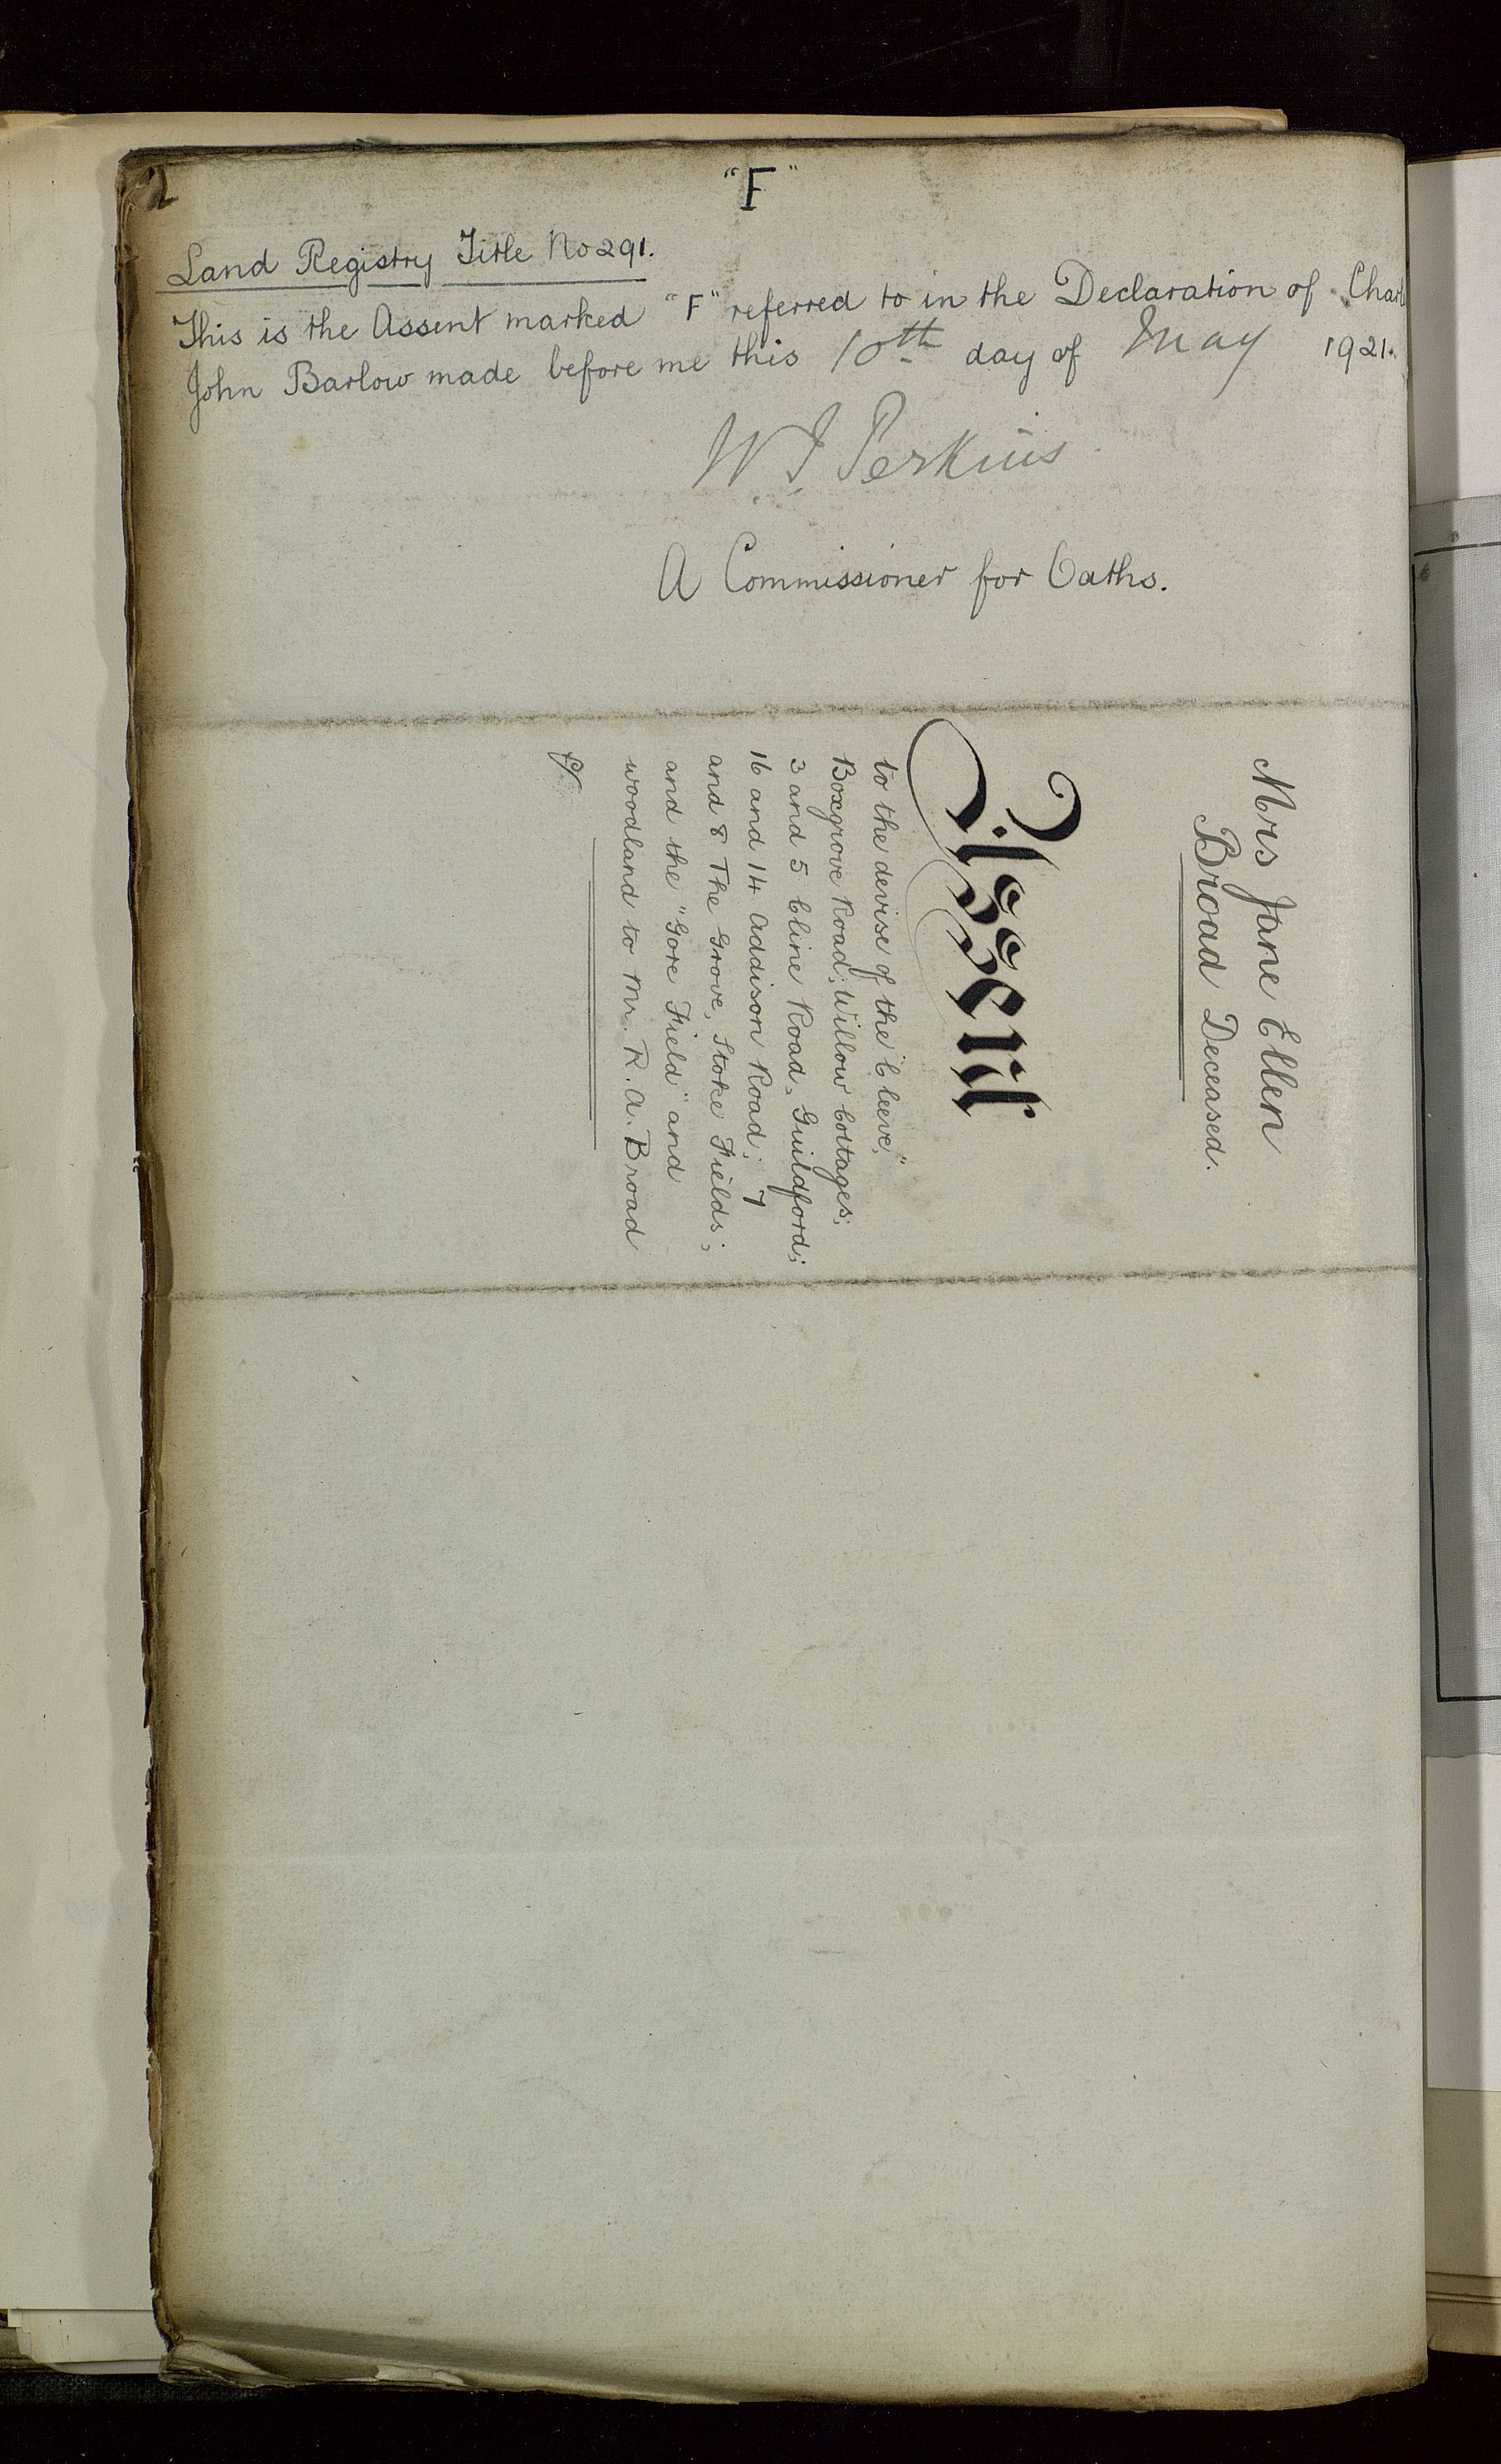 "F"
Land Registry Title No 291.
This is the Assent marked "F" referred to in the Declaration of Charl
John Barlow made before me this 10th day of May 1921.
W J Perkins
A Commissioner for Oaths.
Mrs Jane Ellen
Broad Deceased.
Assent
to the devise of the "Cleeve,"
Boxgrove Road; Willow Cottages;
3 and 5 Cline Road, Guildford;
16 and 14 Addison Road; 7
and 8 The Grove, Stoke Fields;
and the "Gore Field" and
woodland to Mr. R. A. Broad